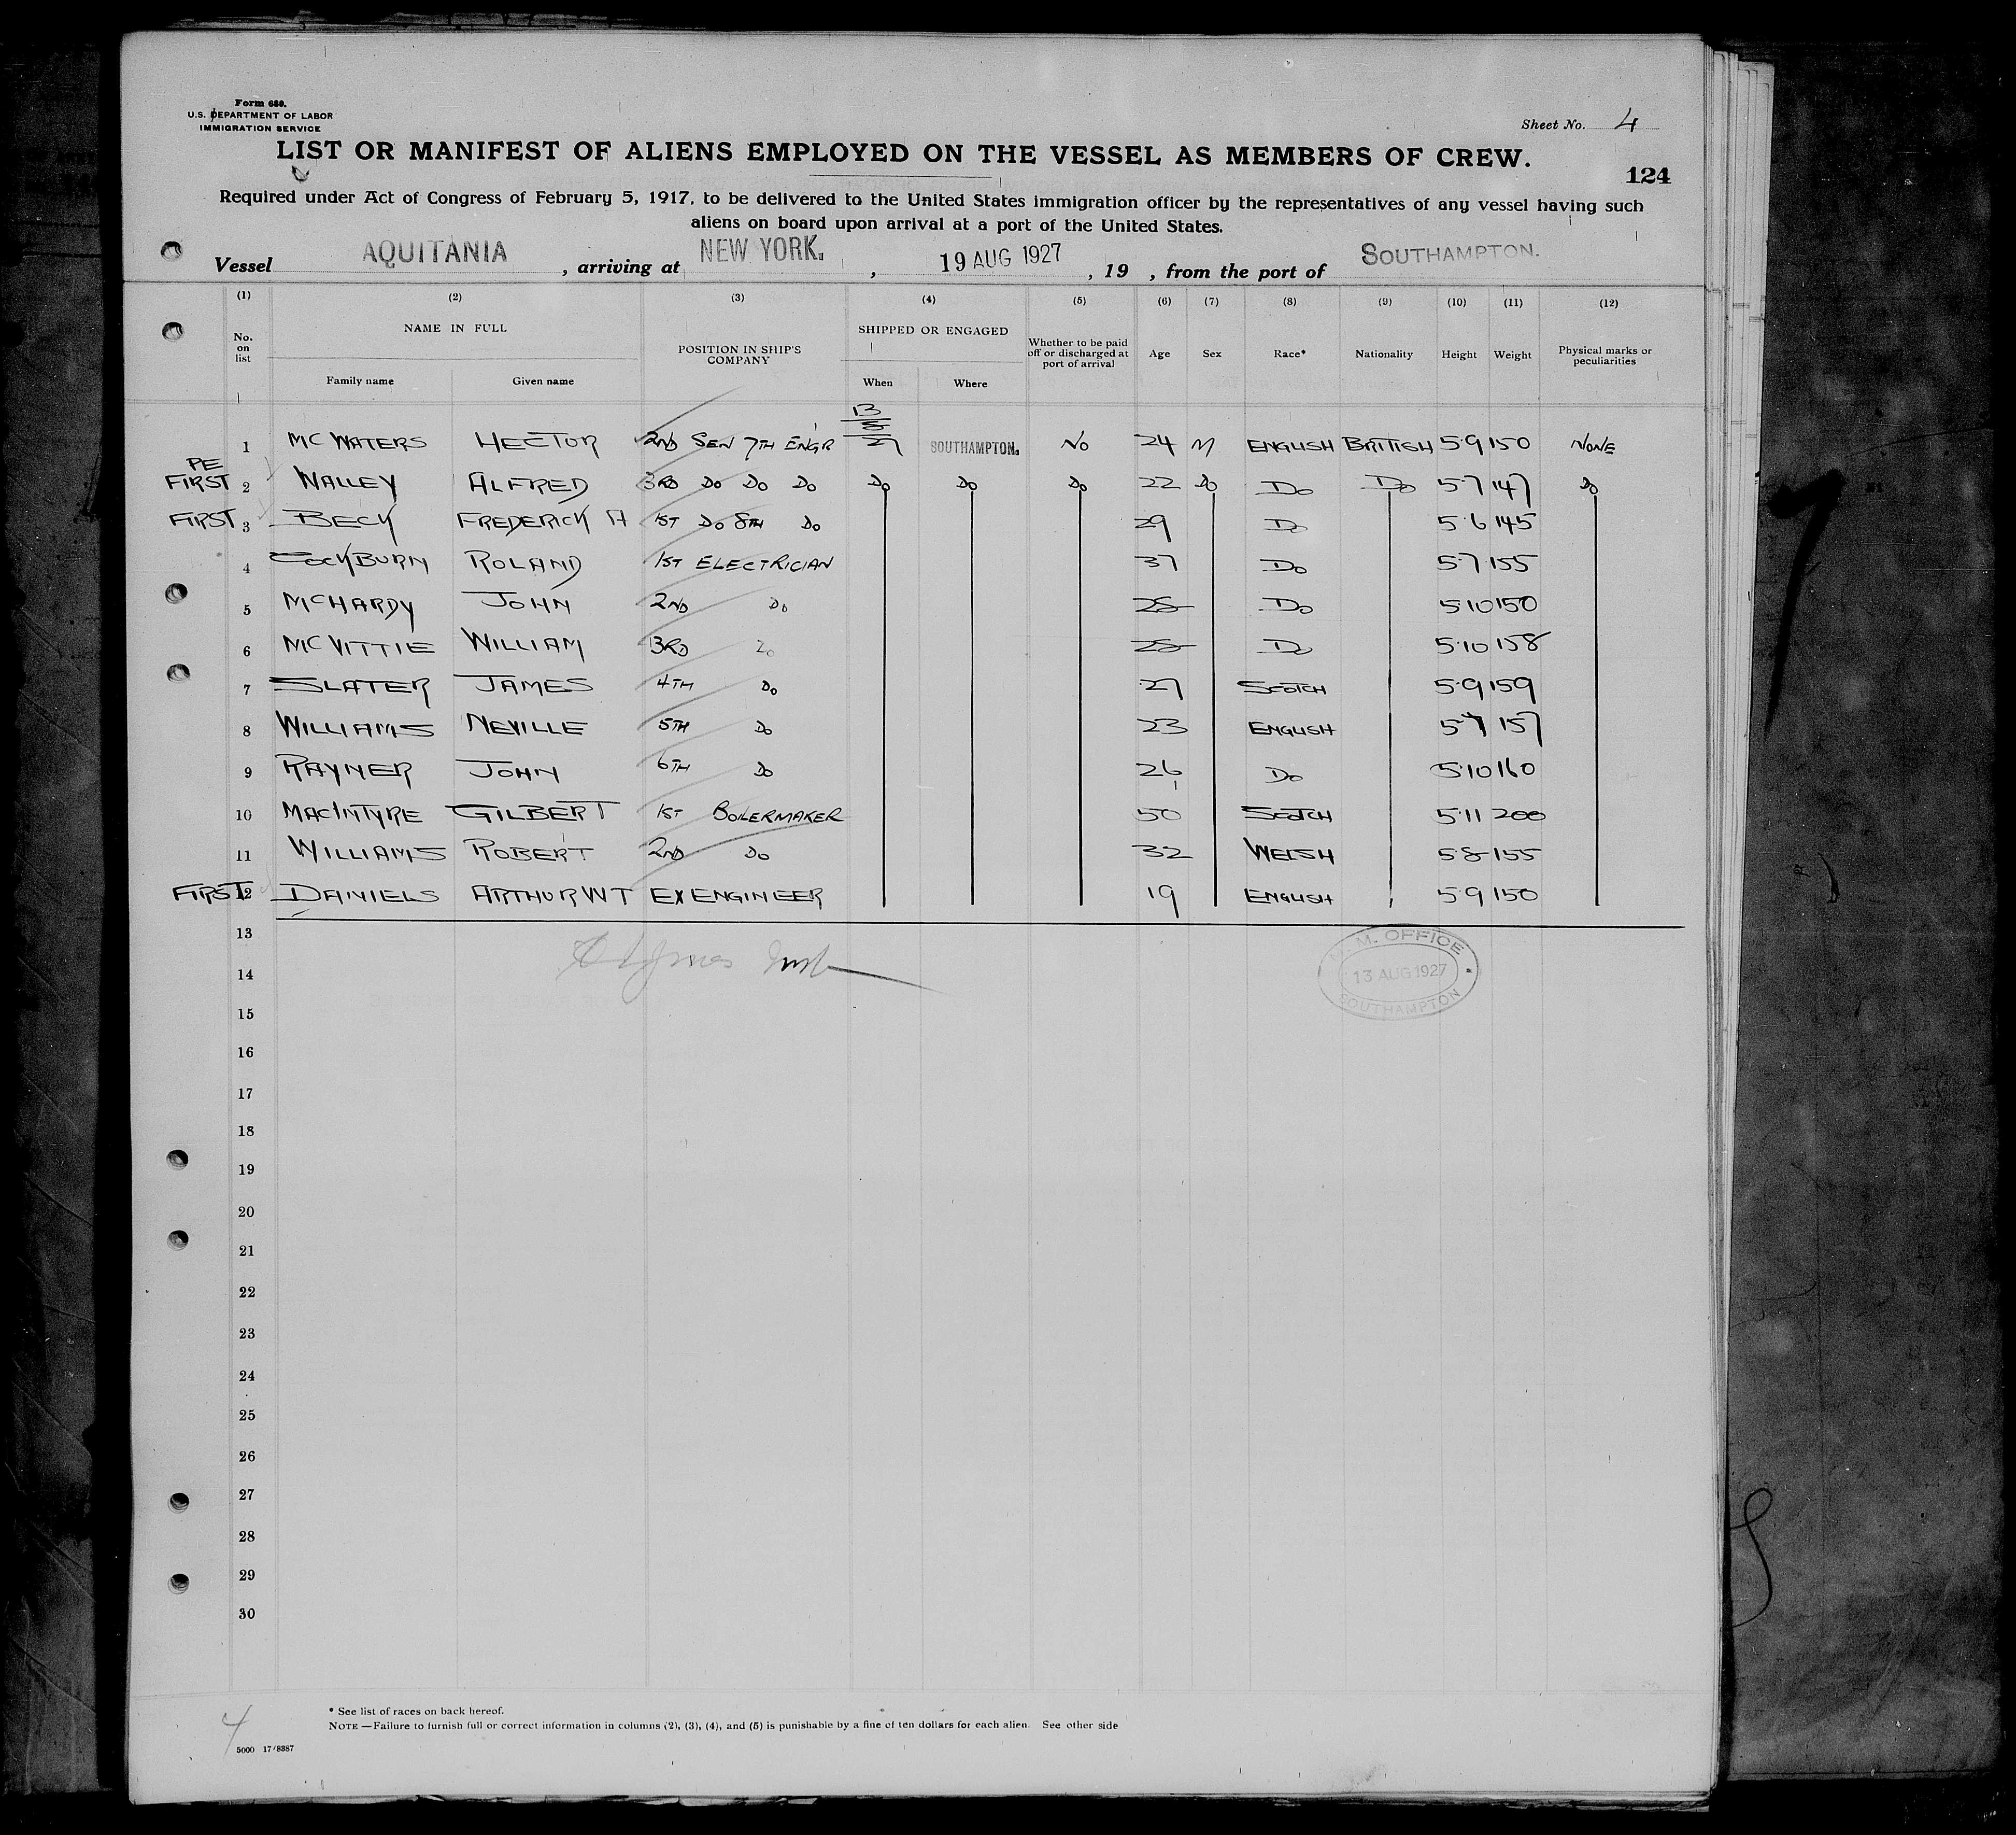 Form 689.
U.S. DEPARTMENT OF LABOR
IMMIGRATION SERVICE
Sheet No. 4
LIST OR MANIFEST OF ALIENS EMPLOYED ON THE VESSEL AS MEMBERS OF CREW.
124
Required under Act of Congress of February 5, 1917, to be delivered to the United States immigration officer by the representatives of any vessel having such
aliens on board upon arrival at a port of the United States.
Vessel AQUITANIA, arriving at NEW YORK., 19 AUG 1927, 19 , from the port of SOUTHAMPTON.
(1) (2) (3) (4) (5) (6) (7) (8) (9) (10) (11) (12)
No. on list NAME IN FULL Family name Given name POSITION IN SHIP'S COMPANY SHIPPED OR ENGAGED When Where Whether to be paid off or discharged at port of arrival Age Sex Race* Nationality Height Weight Physical marks or peculiarities
1 MCWATERS HECTOR 2ND SEN 7TH ENGR 13/8/27 SOUTHAMPTON. NO 24 M ENGLISH BRITISH 5·9 150 NONE
PE FIRST 2 WALLEY ALFRED 3RD DO DO DO DO DO DO 22 DO DO DO 5·7 147 DO
FIRST 3 BECK FREDERICK A 1ST DO 8TH DO 29 DO 5·6 145
4 COCKBURN ROLAND 1ST ELECTRICIAN 37 DO 5·7 155
5 MCHARDY JOHN 2ND DO 28 DO 5·10 150
6 MCVITTIE WILLIAM 3RD DO 28 DO 5·10 158
7 SLATER JAMES 4TH DO 27 SCOTCH 5·9 159
8 WILLIAMS NEVILLE 5TH DO 23 ENGLISH 5·7 157
9 RAYNER JOHN 6TH DO 26 DO 5·10 160
10 MACINTYRE GILBERT 1ST BOILERMAKER 50 SCOTCH 5·11 200
11 WILLIAMS ROBERT 2ND DO 32 WELSH 5·8 155
FIRST 12 DANIELS ARTHUR W T EX ENGINEER 19 ENGLISH 5·9 150
13
14
M. OFFICE
13 AUG 1927
SOUTHAMPTON
15
16
17
18
19
20
21
22
23
24
25
26
27
28
29
30
4
* See list of races on back hereof.
NOTE —Failure to furnish full or correct information in columns (2), (3), (4), and (5) is punishable by a fine of ten dollars for each alien. See other side
5000 17/8387